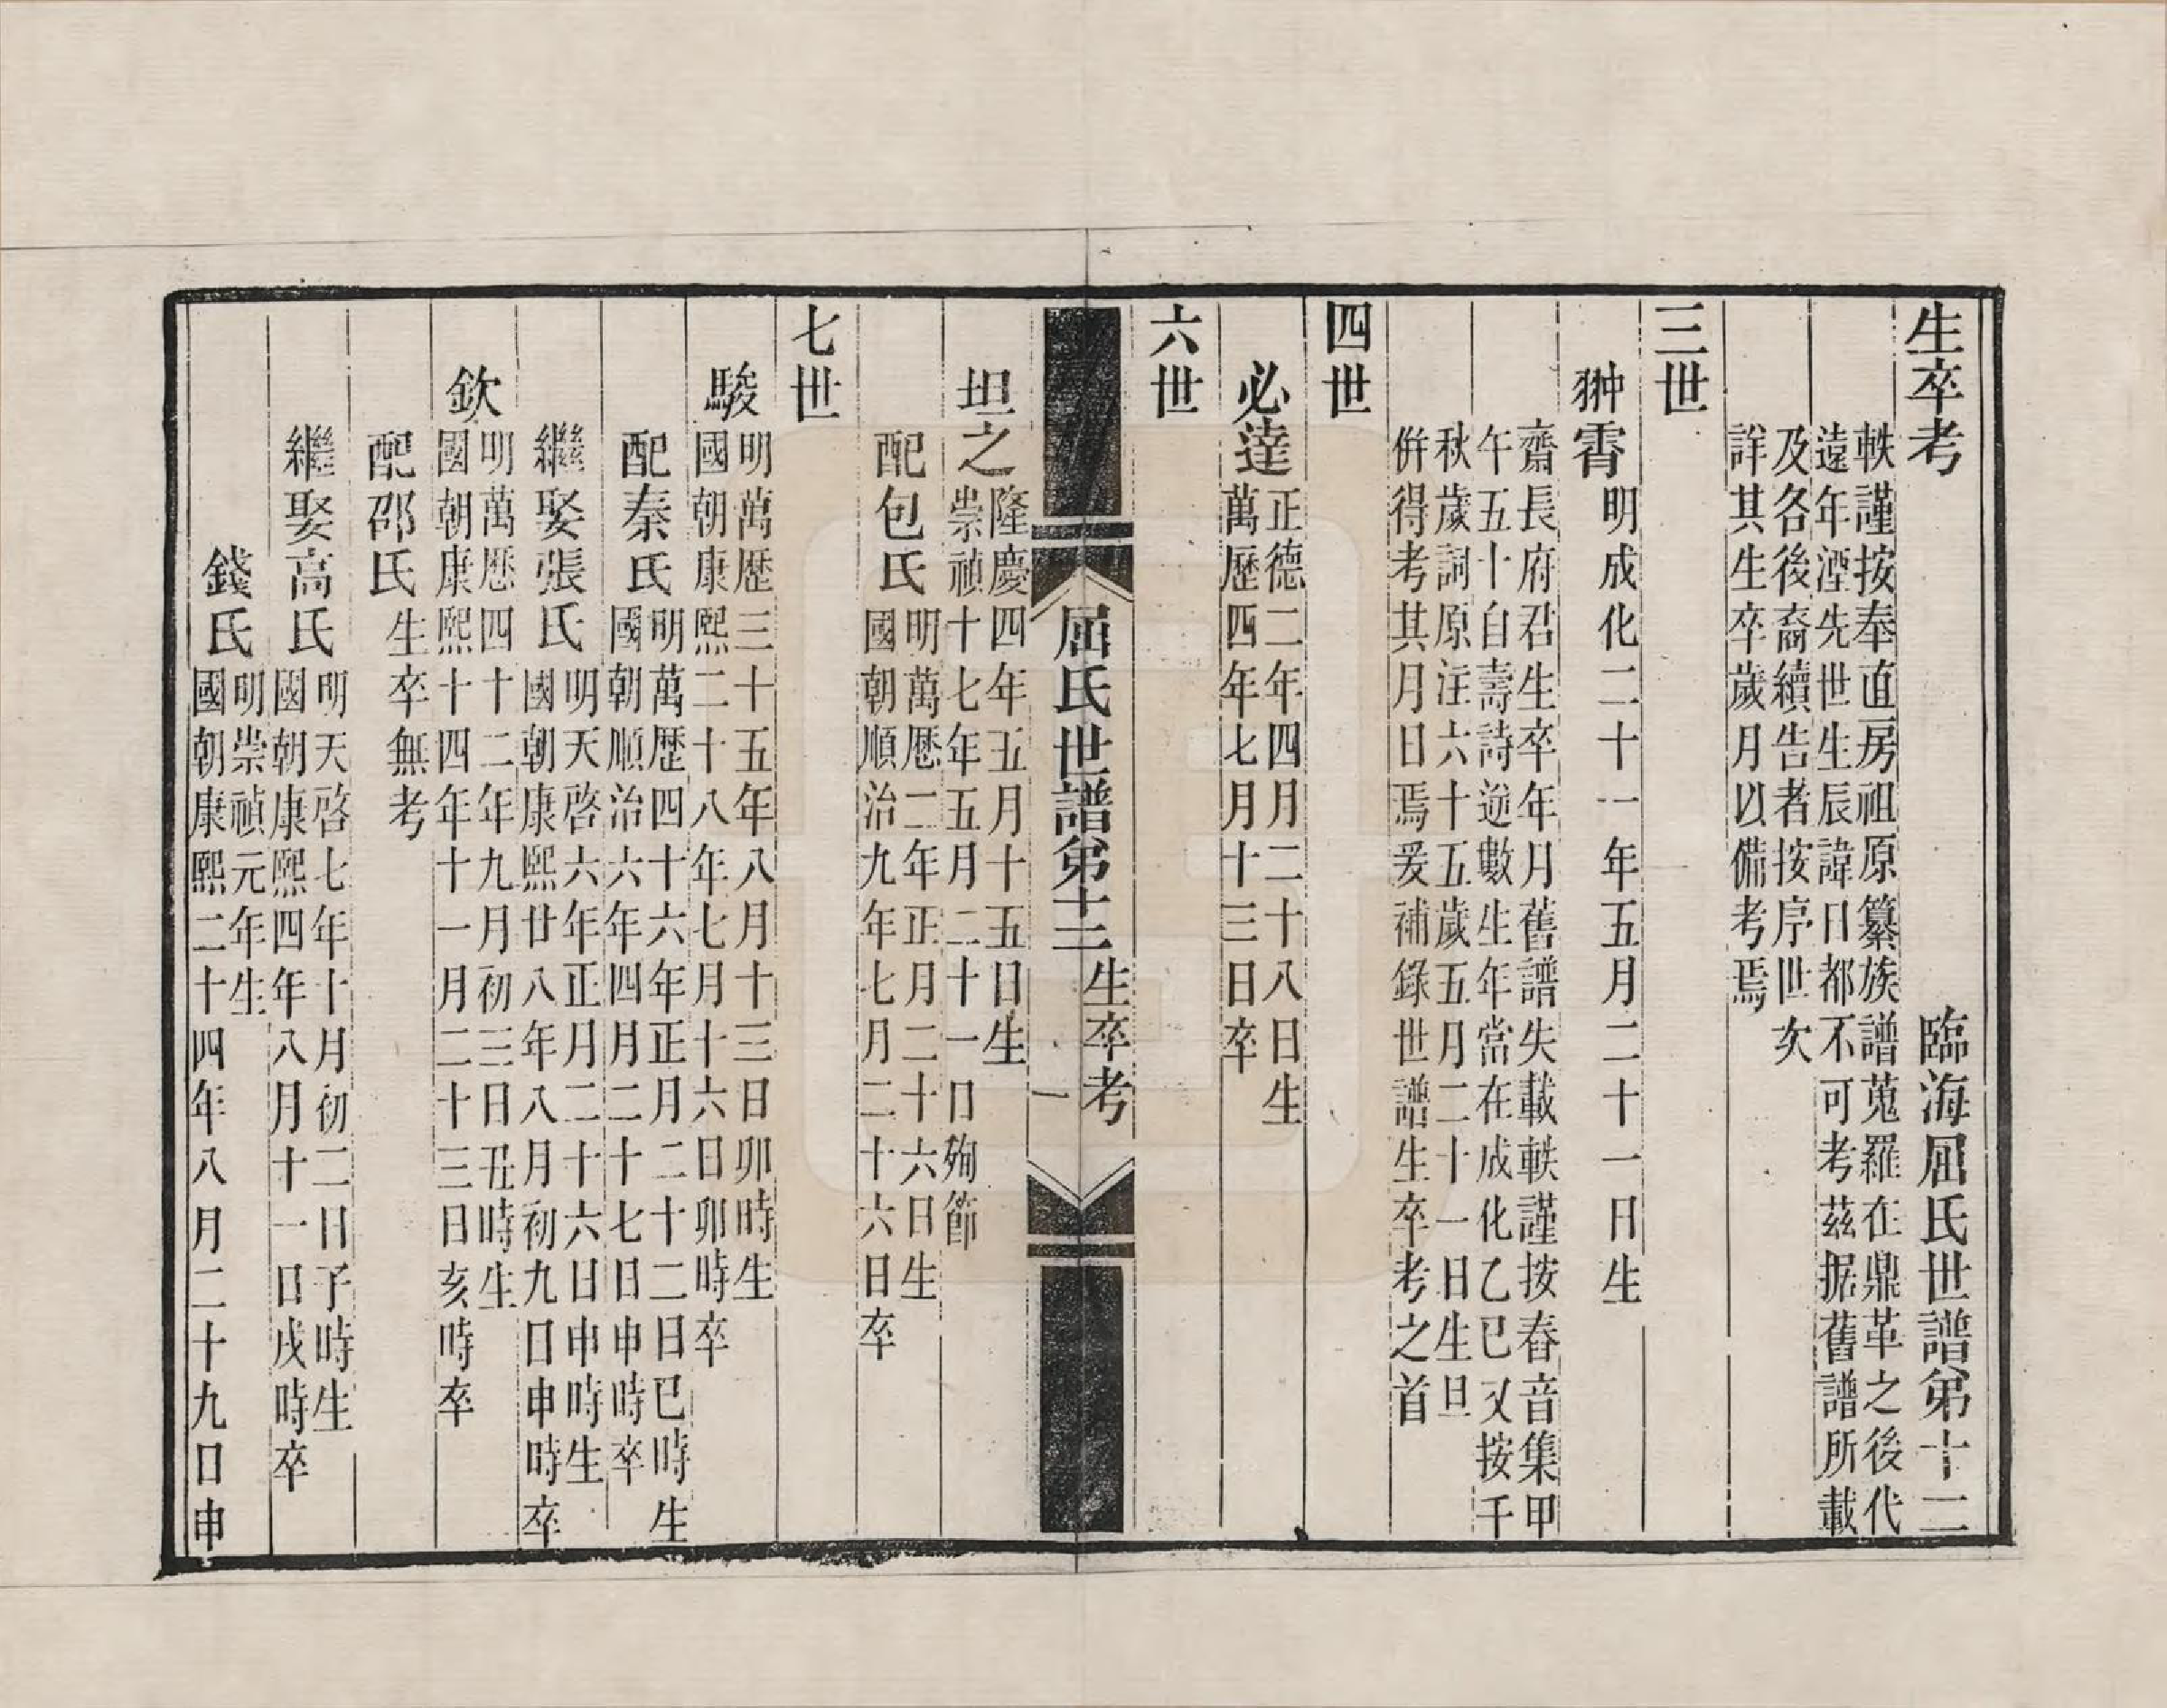 生卒考　臨海屈氏世譜第十二
軼謹按奉直房祖原纂族譜蒐羅在鼎革之後代
遠年湮先世生辰諱日都不可考茲据舊譜所載
及各後裔續告者按序世次
詳其生卒歲月以備考焉
三世
翀霄
明成化二十一年五月二十一日生
齋長府君生卒年月舊譜失載軼謹按春音集甲
午五十自壽詩逆數生年當在成化乙巳又按千
秋歲詞原注六十五歲五月二十一日生旦
倂得考其月日焉爰補錄世譜生卒考之首
四世
必達
正德二年四月二十八日生
萬歷四年七月十三日卒
六世
屈氏世譜第十二　生卒考　一
坦之
隆慶四年五月十五日生
崇禎十七年五月二十一日殉節
配包氏
明萬歷二年正月二十六日生
國朝順治九年七月二十六日卒
七世
駿
明萬歷三十五年八月十三日卯時生
國朝康熙二十八年七月十六日卯時卒
配秦氏
明萬歷四十六年正月二十二日巳時生
國朝順治六年四月二十七日申時卒
繼娶張氏
明天啓六年正月二十六日申時生
國朝康熙廿八年八月初九日申時卒
欽
明萬歷四十二年九月初三日丑時生
國朝康熙十四年十一月二十三日亥時卒
配邵氏
生卒無考
繼娶高氏
明天啓七年十月初二日子時生
國朝康熙四年八月十一日戌時卒
錢氏
明崇禎元年生
國朝康熙二十四年八月二十九日申